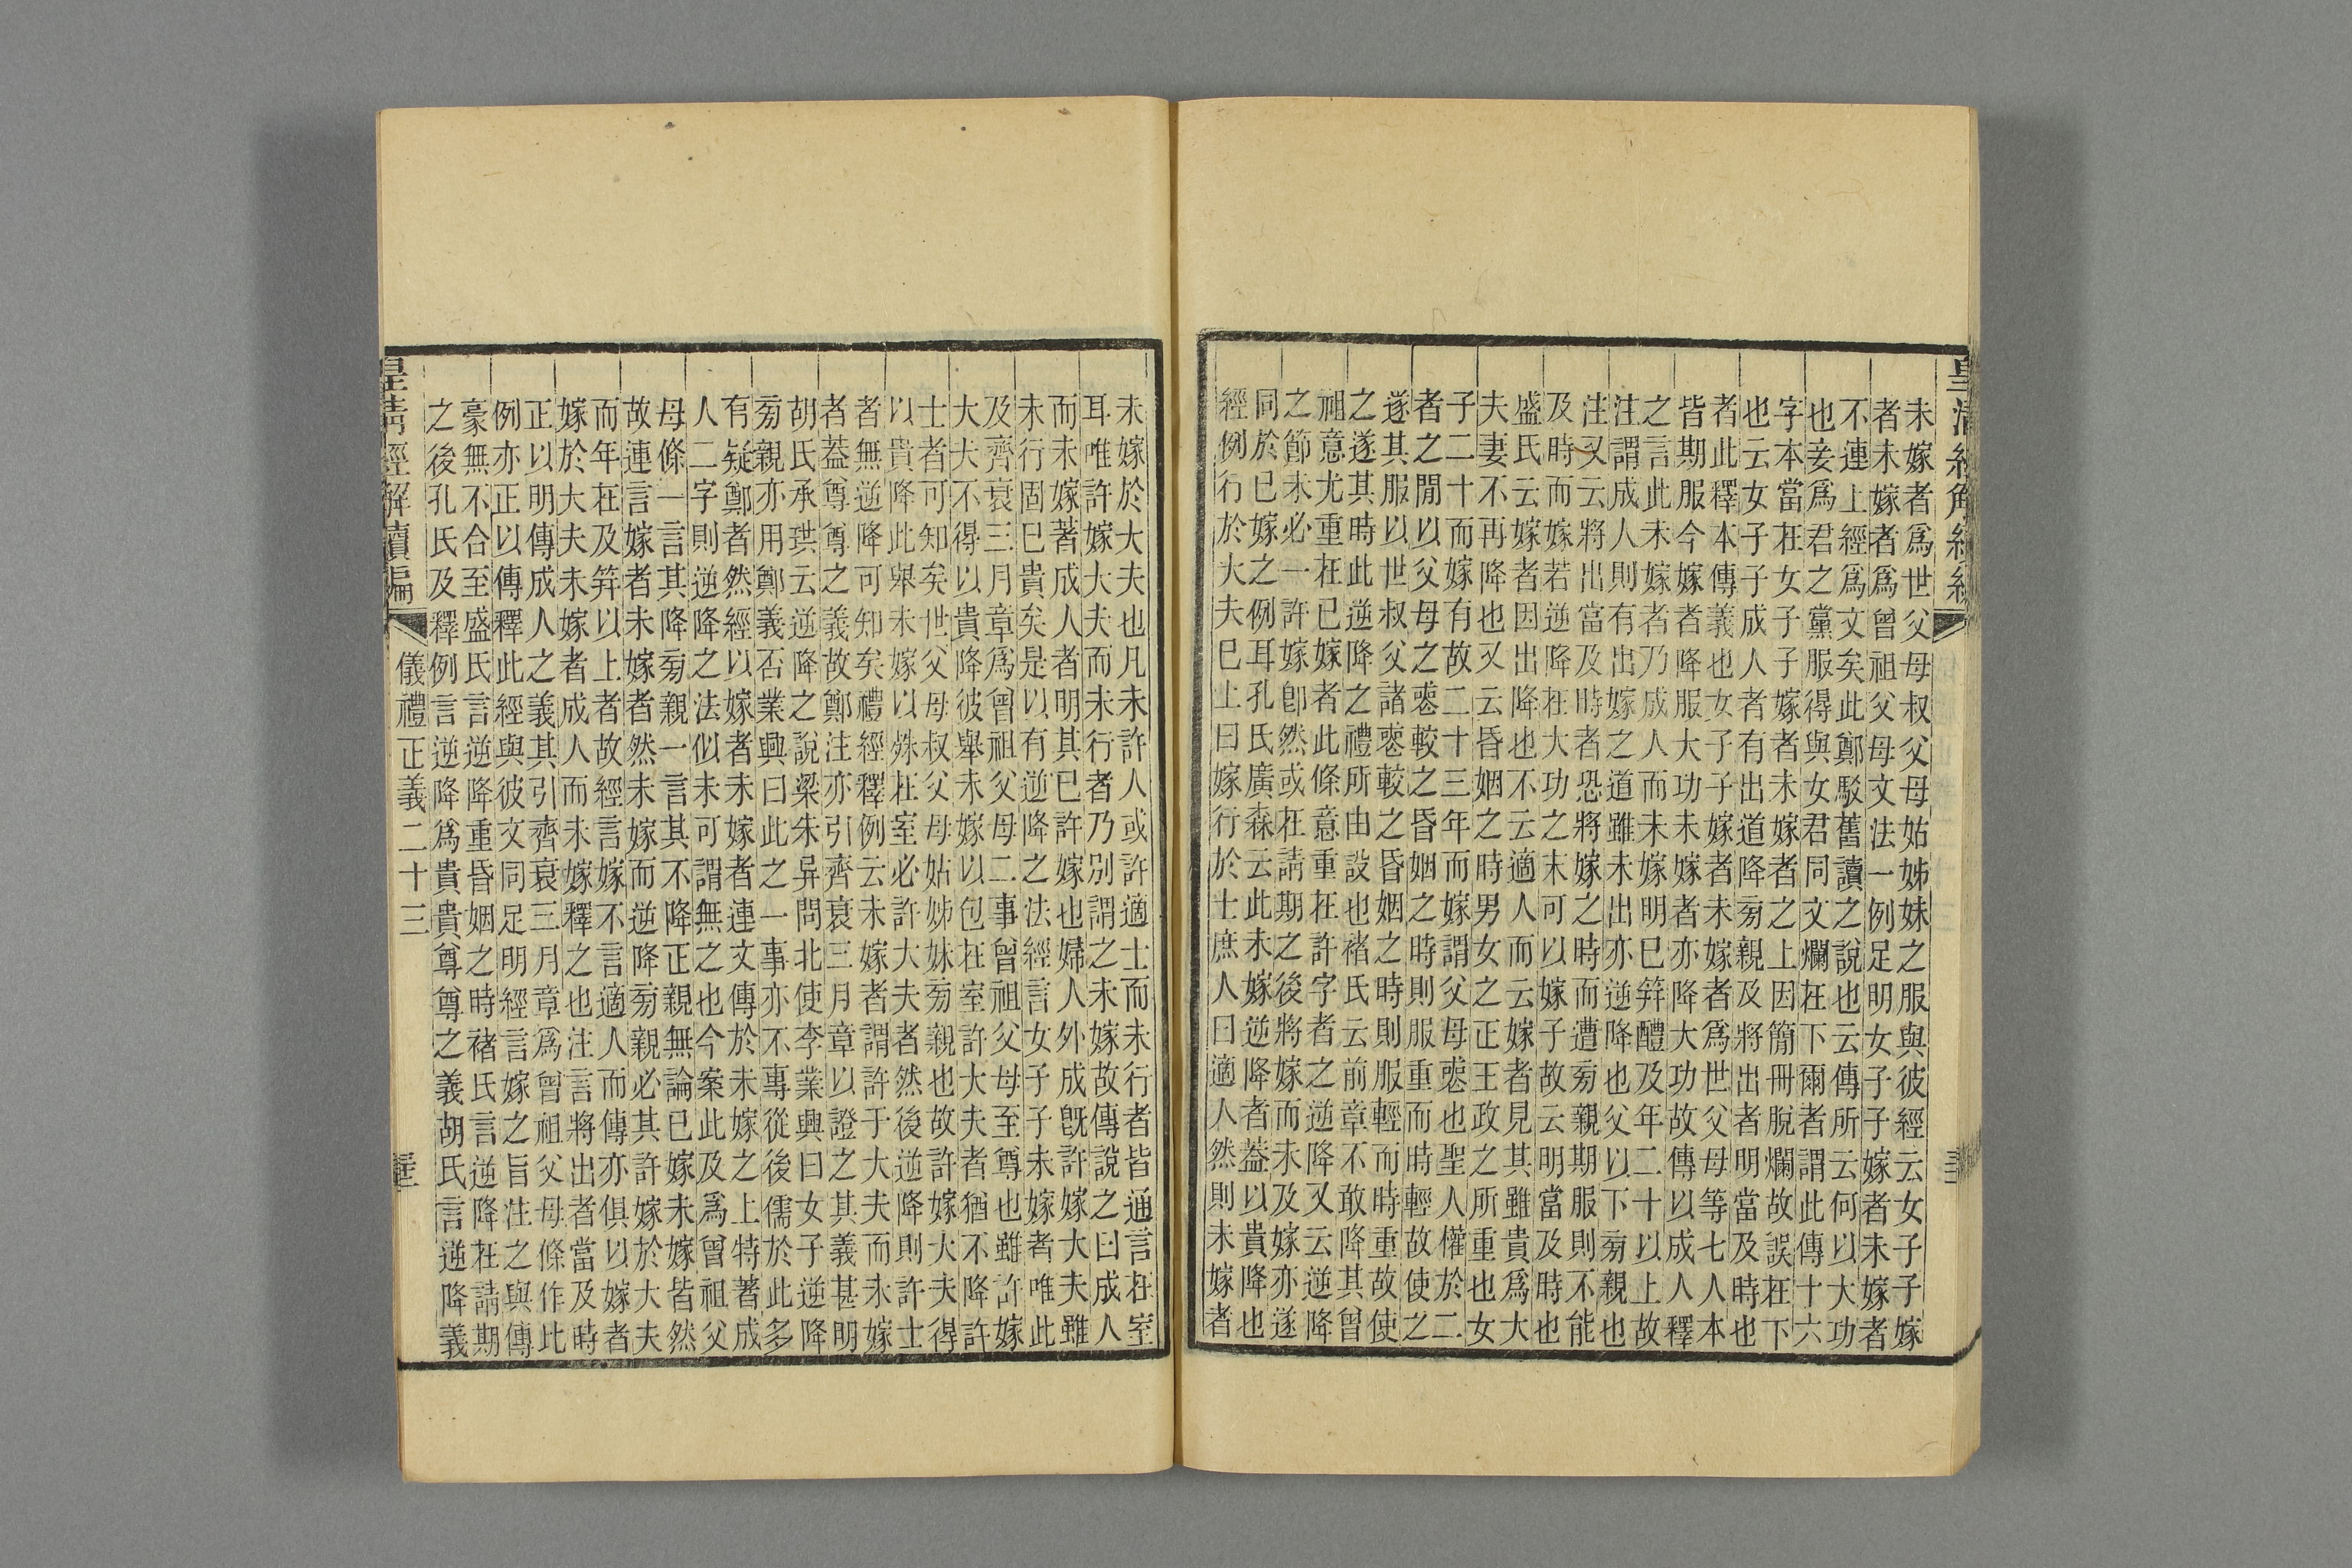 皇清經解續編
未嫁者爲世父母叔父母姑姊妹之服與彼經云女子子嫁
者未嫁者爲曾祖父母文法一例足明女子子嫁者未嫁者
不連上經爲文矣此鄭駁舊讀之說也云傳所云何以大功
也妾爲君之黨服得與女君同文爛在下爾者謂此傳十六
字本當在女子子嫁者未嫁者之上因簡冊脫爛故誤在下
也云女子子成人者有出道降旁親及將出者明當及時也
者此釋本傳義也女子子嫁者未嫁者爲世父母等七人本
皆期服今嫁者降服大功未嫁者亦降大功故傳以成人釋
之言此未嫁者乃成人而未嫁明已笄醴及年二十以上故
注謂成人則有出嫁之道雖未出亦逆降也父以下旁親也
注又云將出當及時者恐將嫁之時而遭旁親期服則不能
及時而嫁若逆降在大功之末可以嫁子故云明當及時也
盛氏云嫁者因出降也不云適人而云嫁者見其雖貴爲大
夫妻不再降也又云昏姻之時男女之正王政之所重也女
子二十而嫁有故二十三年而嫁謂父母喪也聖人權於二
者之閒以父母之喪較之昏姻之時則服重而時輕故使之
遂其服以世叔父諸喪較之昏姻之時則服輕而時重故使
之遂其時此逆降之禮所由設也褚氏云前章不敢降其曾
祖意尤重在已嫁者此條意重在許字者之逆降又云逆降
之節未必一許嫁卽然或在請期之後將嫁而未及嫁亦遂
同於已嫁之例耳孔氏廣森云此未嫁逆降者蓋以貴降也
經例行於大夫已上曰嫁行於士庶人曰適人然則未嫁者
未嫁於大夫也凡未許人或許適士而未行者皆通言在室
耳唯許嫁大夫而未行者乃別謂之未嫁故傳說之曰成人
而未嫁著成人者明其已許嫁也婦人外成旣許嫁大夫雖
未行固已貴矣是以有逆降之法經言女子子未嫁者唯此
及齊衰三月章爲曾祖父母二事曾祖父母至尊也雖許嫁
大夫不得以貴降彼舉未嫁以包在室許大夫者猶不降許
士者可知矣世父母叔父母姑姊妹旁親也故許嫁大夫得
以貴降此舉未嫁以殊在室必許大夫者然後逆降則許士
者無逆降可知矣禮經釋例云未嫁者謂許于大夫而未嫁
者蓋尊尊之義故鄭注亦引齊衰三月章以證之其義甚明
胡氏承珙云逆降之說梁朱异問北使李業興曰女子逆降
旁親亦用鄭義否業興曰此之一事亦不專從後儒於此多
有疑鄭者然經以嫁者未嫁者連文傳於未嫁之上特著成
人二字則逆降之法似未可謂無之也今案此及爲曾祖父
母條一言其降旁親一言其不降正親無論已嫁未嫁皆然
故連言嫁者未嫁者然未嫁而逆降旁親必其許嫁於大夫
而年在及笄以上者故經言嫁不言適人而傳亦俱以嫁者
嫁於大夫未嫁者成人而未嫁釋之也注言將出者當及時
正以明傳成人之義其引齊衰三月章爲曾祖父母條作此
例亦正以傳釋此經與彼文同足明經言嫁之旨注之與傳
豪無不合至盛氏言逆降重昏姻之時褚氏言逆降在請期
之後孔氏及釋例言逆降爲貴貴尊尊之義胡氏言逆降義
皇清經解續編 儀禮正義二十三